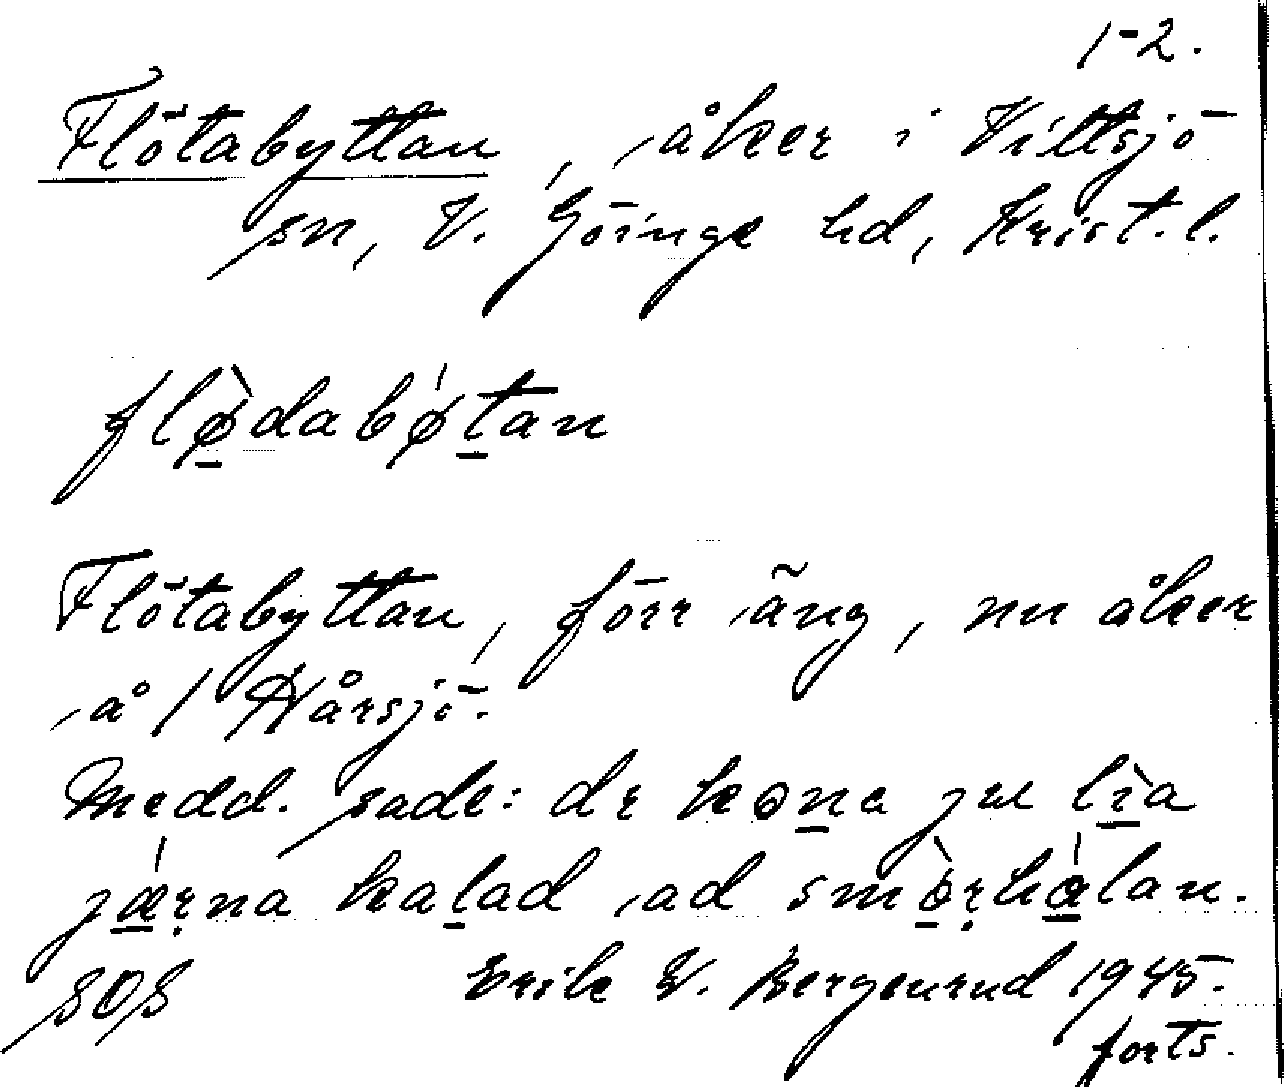 1-2.
Flötabyttan, åker i Vittsjö
sn, V. Göinge hd, Krist. l.
flø̀dabǿtan
Flötabyttan, förr äng, nu åker
å / Hårsjö.
Medd. sade: de kɵna ju lìa
jǽṛna kalad ad smòṛhálan.
SOS Erik V. Bergenrud 1945.
forts.